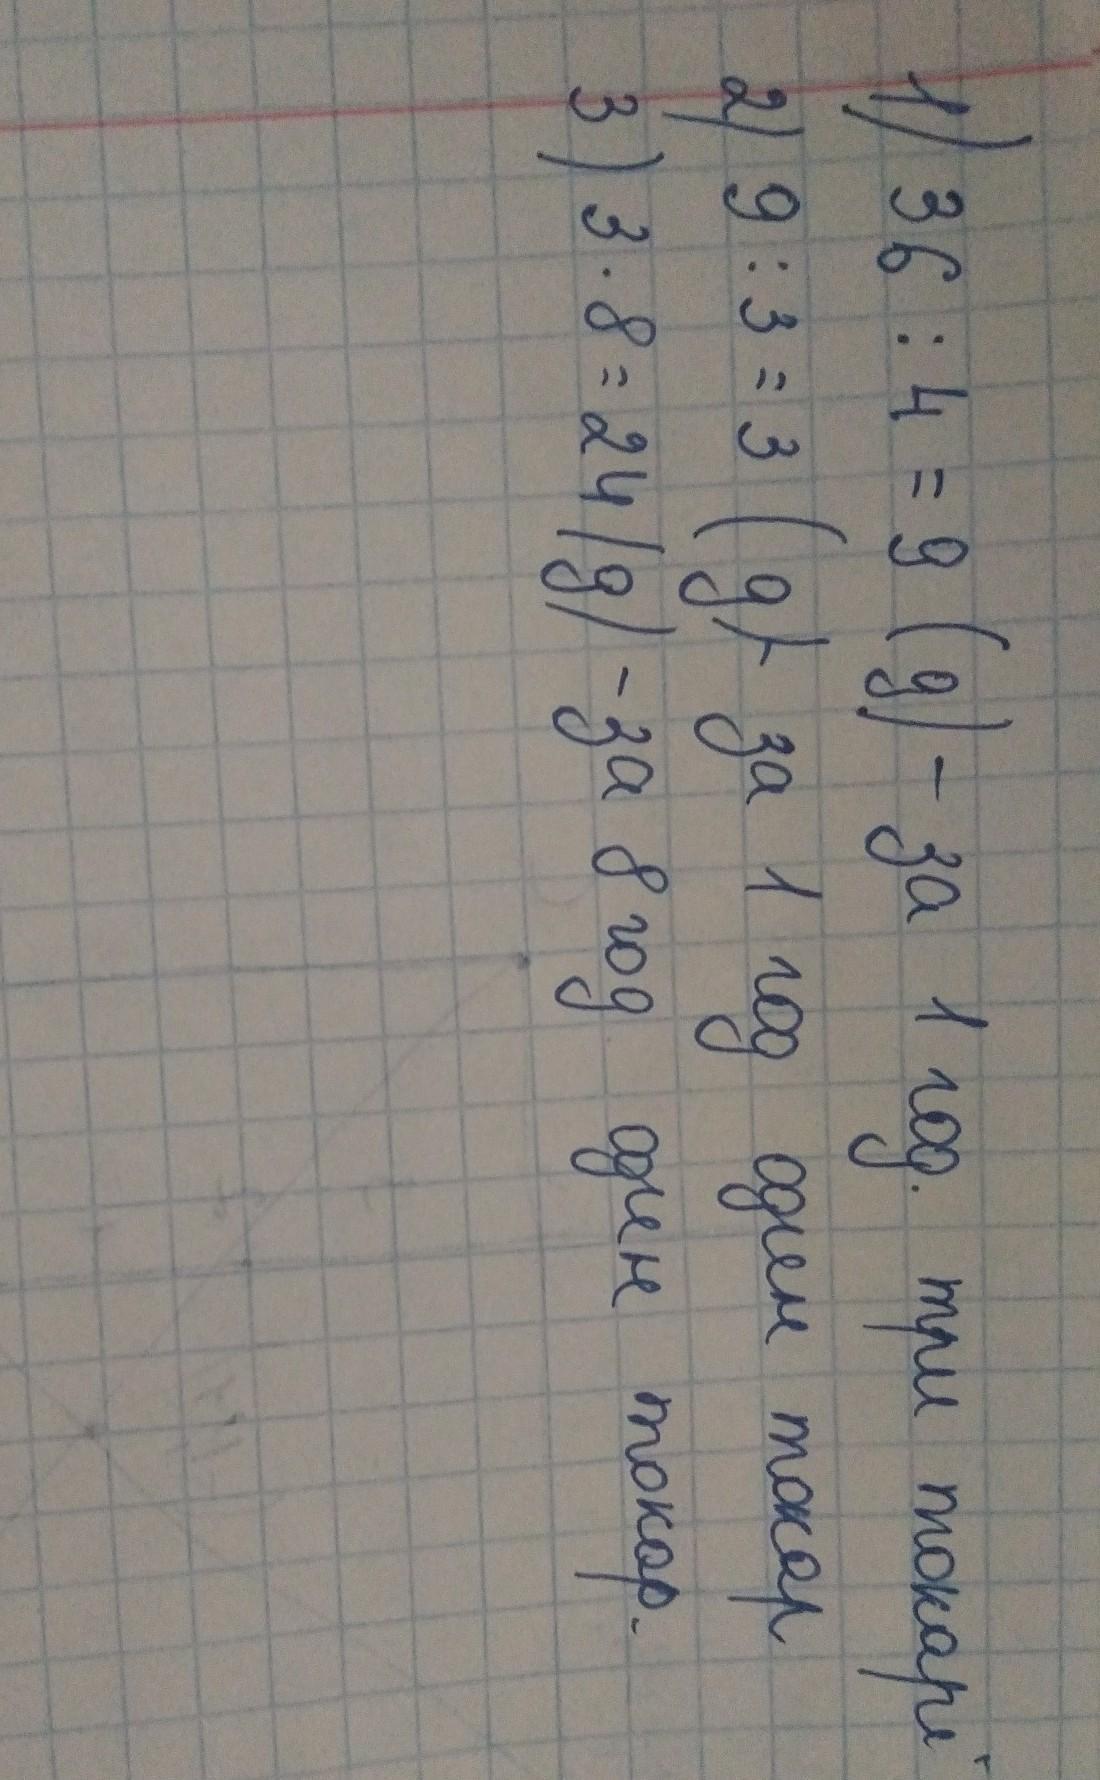 1) 36 : 4 = 9 (д) - за 1 год. три токарі
2) 9 : 3 = 3 (д) - за 1 год один токар
3) 3 · 8 = 24 (д) - за 8 год один токар.